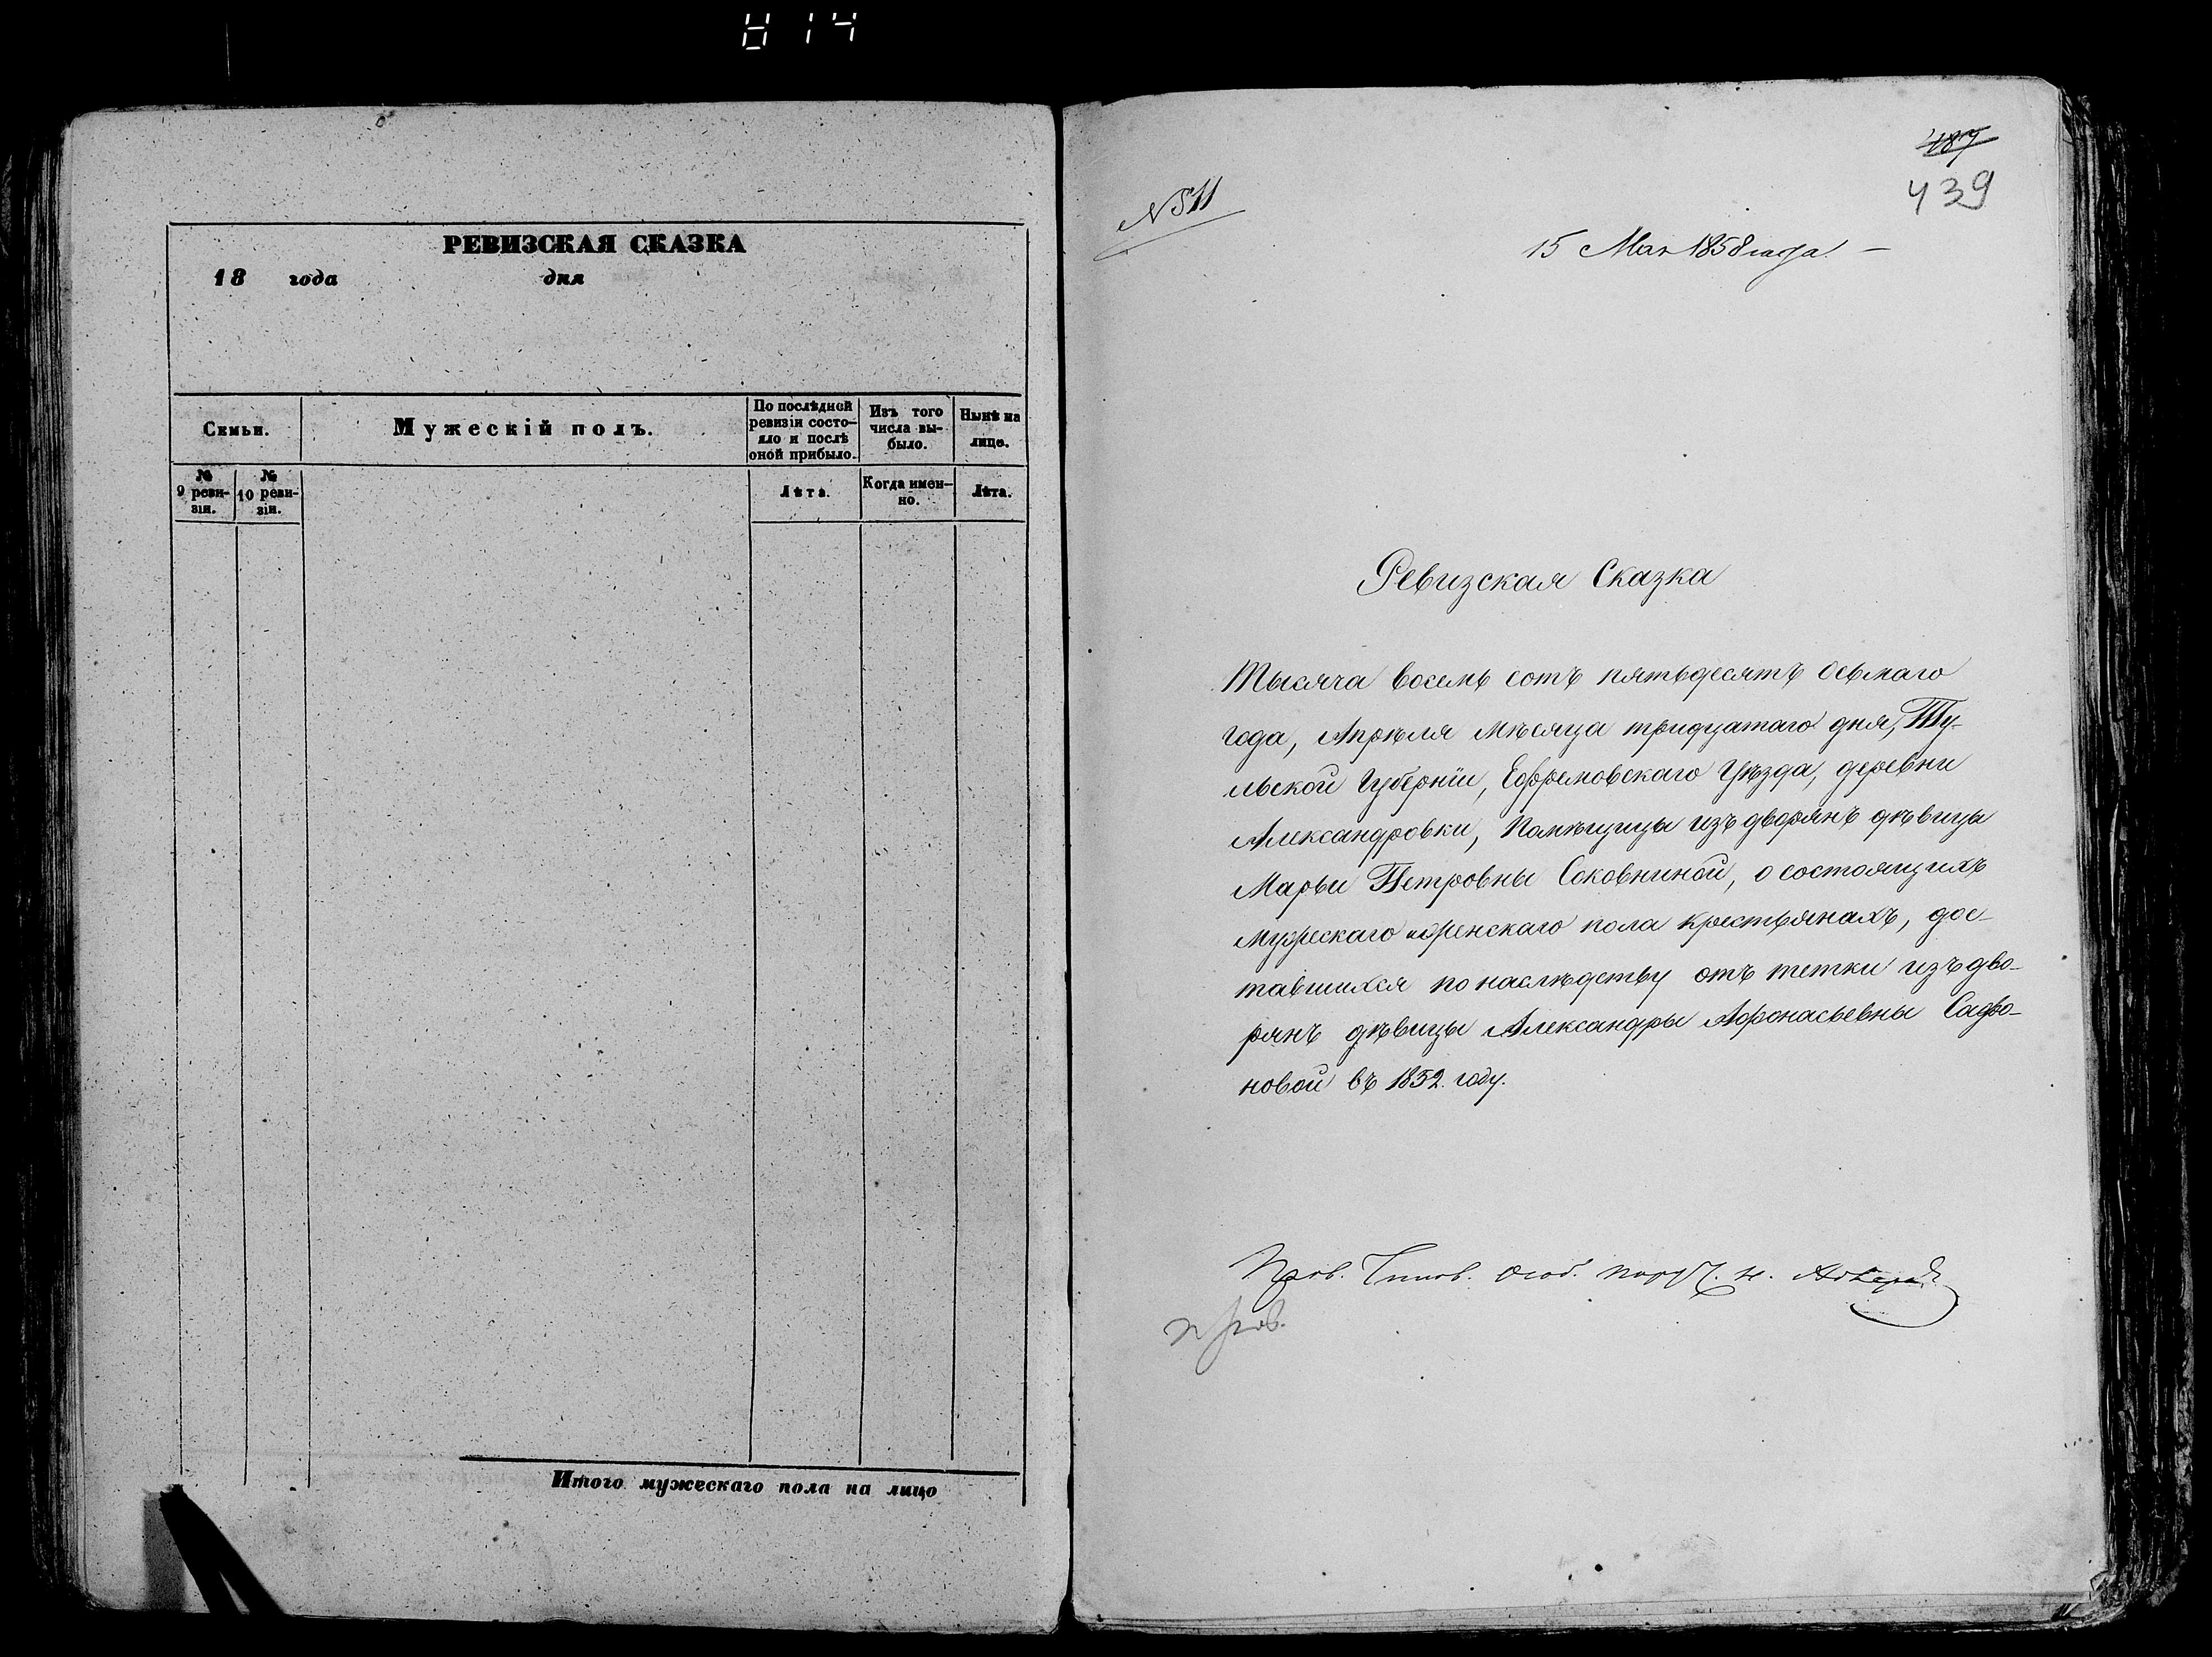 РЕВИЗСКАЯ СКАЗКА
18 года дня
Семьи.
Мужескій полъ.
По послѣдней ревизіи состо-яло и послѣ оной прибыло.
Изъ того числа вы-было.
Нынѣ на лице.
№ 9 реви-зіи.
№ 10 реви-зіи.
Лѣта.
Когда имен-но.
Лѣта.
Итого мужескаго пола на лицо
439
№ 511
15 Мая 1858 года
Ревизская Сказка
Тысяча восемь сотъ пятьдесятъ осьмаго
года, Апрѣля мѣсяца тридцатаго дня, Ту-
льской Губерніи, Ефремовскаго Уѣзда, деревни
Александровки, Помѣщицы изъ дворянъ дѣвицы
Марьи Петровны Соковниной, о состоящихъ
мужескаго и женскаго пола крестьянахъ, дос-
тавшихся по наслѣдству отъ тетки изъ дво-
рянъ дѣвицы Александры Афонасьевны Садво-
новой въ 1852 году.
Пров. Чинов. особ. поруч. Н.
Пров.